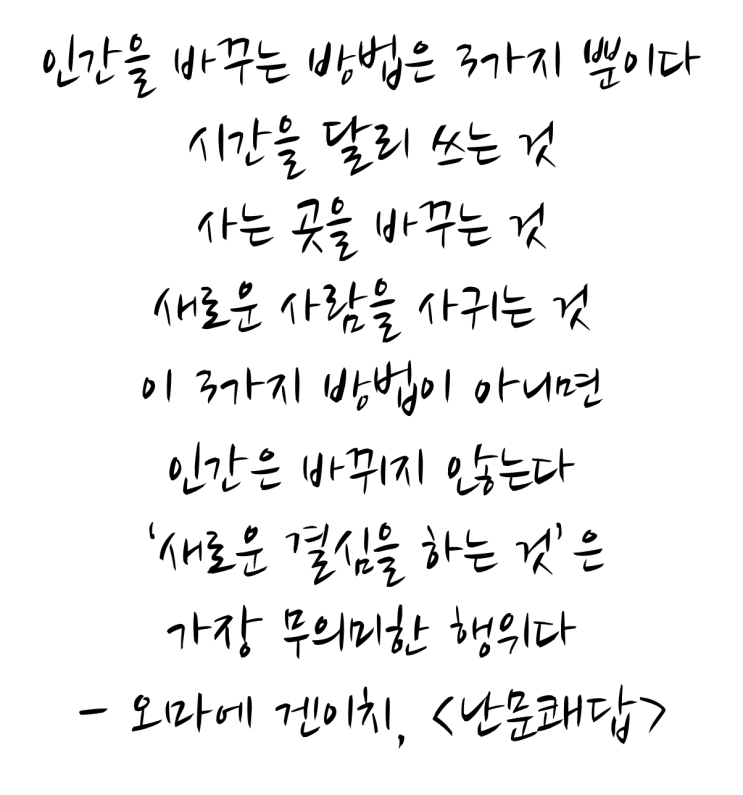 인간을 바꾸는 방법은 3가지 뿐이다
시간을 달리 쓰는 것
사는 곳을 바꾸는 것
새로운 사람을 사귀는 것
이 3가지 방법이 아니면
인간은 바뀌지 않는다
‘새로운 결심을 하는 것’은
가장 무의미한 행위다
- 오마에 겐이치, <난문쾌답>